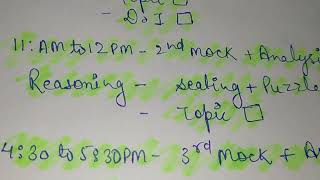 - D.I □
11:AM to 12PM - 2nd Mock + Analysi
Reasoning - seating + Puzzle
- Topic □
4:30 to 5:30PM - 3rd Mock + A